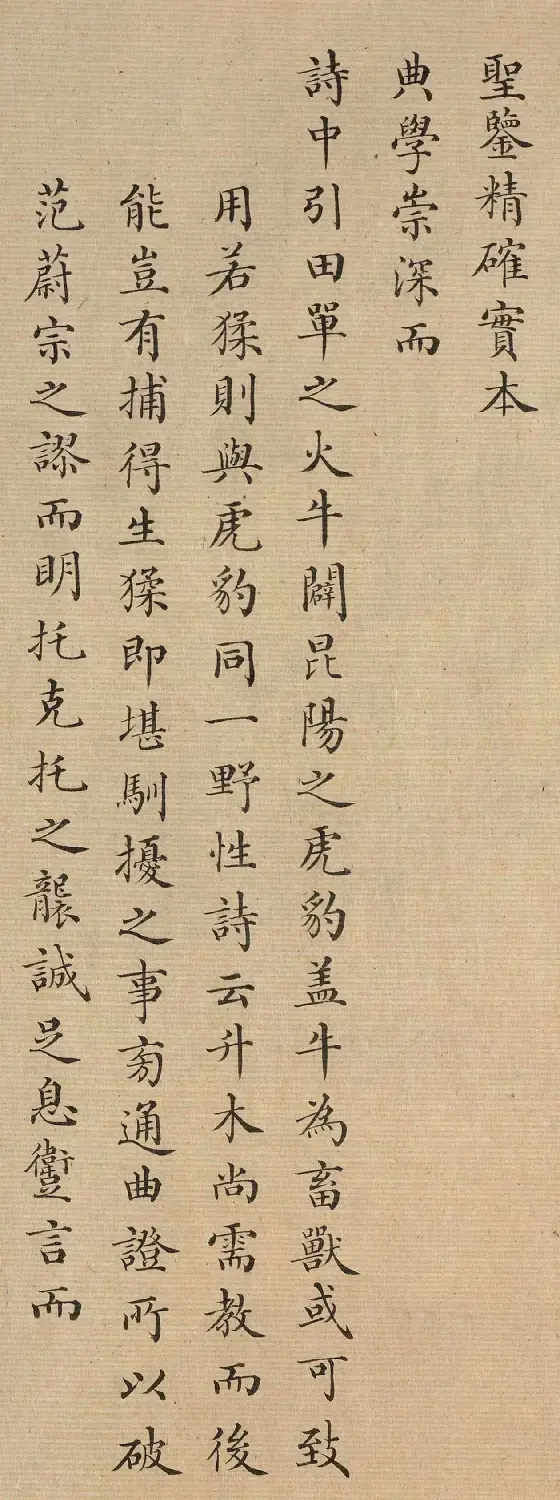 聖鑒精確實本
典學崇深而
詩中引田單之火牛闢昆陽之虎豹盖牛為畜獸或可致
用若猱則與虎豹同一野性詩云升木尚需教而後
能豈有捕得生猱即堪馴擾之事㫄通曲證所以破
范蔚宗之謬而明托克托之襲誠足息躗言而